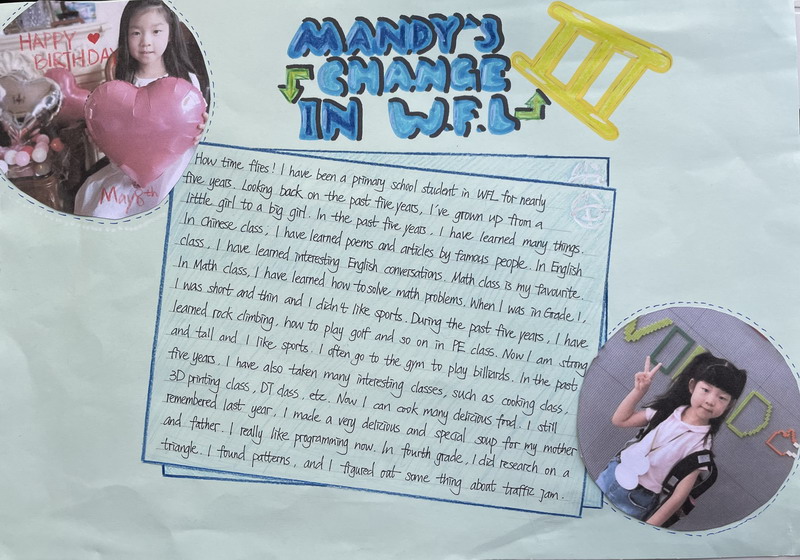 HAPPY
BIRTHDAY
May 8th
MANDY'S
CHANGE
IN W.F.L
III
How time flies! I have been a primary school student in WFL for nearly
five years. Looking back on the past five years, I've grown up from a
little girl to a big girl. In the past five years. I have learned many things.
In Chinese class, I have learned poems and articles by famous people. In English
class, I have learned interesting English conversations. Math class is my favourite.
In Math class, I have learned how to solve math problems. When I was in Grade 1,
I was short and thin and I didn't like sports. During the past five years, I have
learned rock climbing, how to play golf and so on in PE class. Now I am strong
and tall and I like sports. I often go to the gym to play billiards. In the past
five years. I have also taken many interesting classes, such as cooking class,
3D printing class, DT class, etc. Now I can cook many delicious food. I still
remembered last year, I made a very delicious and special soup for my mother
and father. I really like programming now. In fourth grade, I did research on a
triangle. I found patterns, and I figured out some thing about traffic jam.